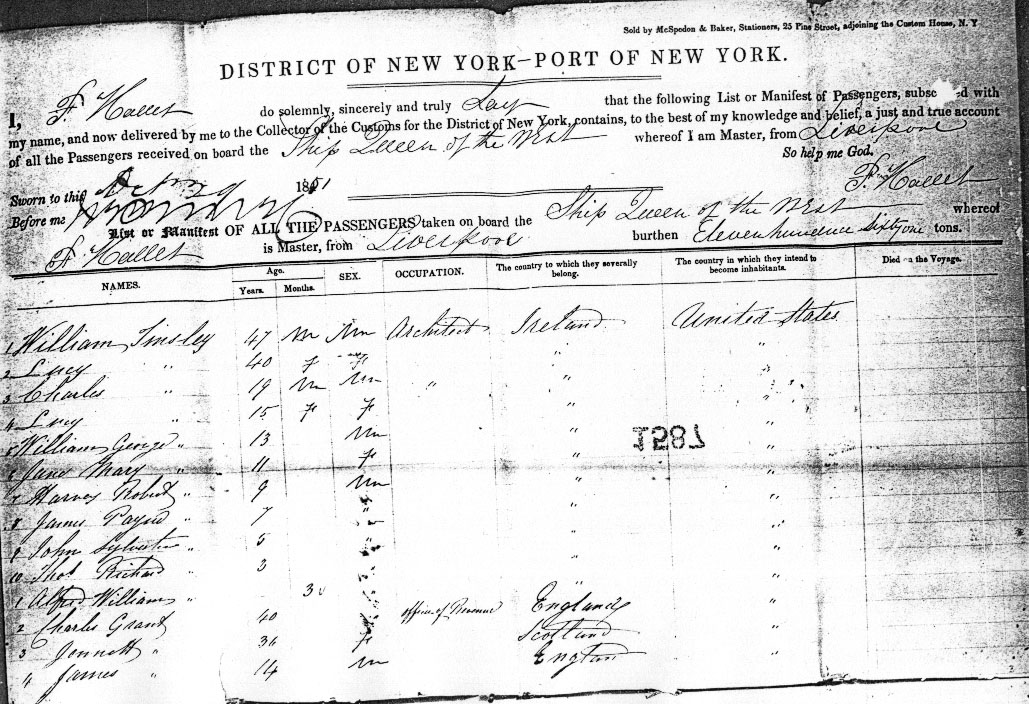 Sold by McSpedon & Baker, Stationers, 25 Pine Street, adjoining the Custom House, N. Y
DISTRICT OF NEW YORK—PORT OF NEW YORK.
I, F. Hallet do solemnly, sincerely and truly Say that the following List or Manifest of Passengers, subsc ed with
my name, and now delivered by me to the Collector of the Customs for the District of New York, contains, to the best of my knowledge and belief, a just and true account
of all the Passengers received on board the Ship Queen of the West whereof I am Master, from Liverpool
So help me God.
Sworn to this 1851 F. Hallet
Before me
List or Manifest OF ALL THE PASSENGERS taken on board the Ship Queen of the West whereof
F. Hallet is Master, from Liverpool burthen Eleven hundred Sixty one tons.
NAMES. Age. Years. Months. SEX. OCCUPATION. The country to which they severally belong. The country in which they intend to become inhabitants. Died on the Voyage.
1 William Tinsley 47 m m Architect Ireland United States
2 Lucy " 40 f f " "
3 Charles " 19 m m " " "
4 Lucy " 15 f f " "
5 William George " 13 m " "
6 Jane Mary " 11 f " "
7 Harvey Robert " 9 m " "
8 James Payne " 7 " " "
9 John Sylvester " 5 " " "
10 Thos Richard " 3 " " "
1 Alfred William " 30 " " "
2 Charles Grant 40 " office of Revenue England "
3 Jennett " 36 f Scotland "
4 James " 14 m England "
1587